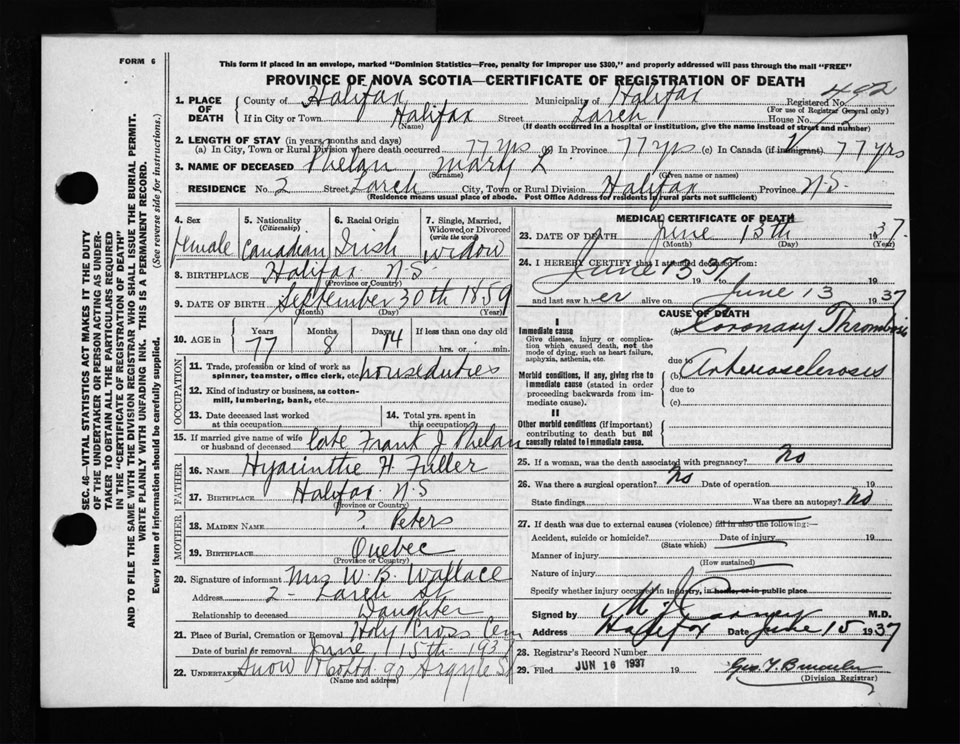 FORM 6
This form if placed in an envelope, marked "Dominion Statistics—Free, penalty for improper use $300," and properly addressed will pass through the mail "FREE"
PROVINCE OF NOVA SCOTIA—CERTIFICATE OF REGISTRATION OF DEATH
492
1. PLACE OF DEATH County of Halifax Municipality of Halifax Registered No.
(For use of Registrar General only)
If in City or Town Halifax Street Larch House No. 2
(Name) (If death occurred in a hospital or institution, give the name instead of street and number)
2. LENGTH OF STAY (in years, months and days)
(a) In City, Town or Rural Division where death occurred 77 yrs (b) In Province 77 yrs (c) In Canada (if immigrant) 77 yrs
3. NAME OF DECEASED Phelan Mary L.
(Surname) (Given name or names)
RESIDENCE No. 2 Street Larch City, Town or Rural Division Halifax Province N.S.
(Residence means usual place of abode. Post Office Address for residents in rural parts not sufficient)
4. Sex female
5. Nationality (Citizenship) Canadian
6. Racial Origin Irish
7. Single, Married, Widowed or Divorced (write the word) widow
8. BIRTHPLACE Halifax N.S.
(Province or Country)
9. DATE OF BIRTH September 30th 1859
(Month) (Day) (Year)
10. AGE in Years 77 Months 8 Days 14 If less than one day old
hrs. or min.
OCCUPATION
11. Trade, profession or kind of work as spinner, teamster, office clerk, etc. houseduties
12. Kind of industry or business, as cotton-mill, lumbering, bank, etc.
13. Date deceased last worked at this occupation
14. Total yrs. spent in this occupation
15. If married give name of wife or husband of deceased late Frank J. Phelan
FATHER
16. NAME Hyacinthe H. Fuller
17. BIRTHPLACE Halifax N.S
(Province or Country)
MOTHER
18. MAIDEN NAME ? Peters
19. BIRTHPLACE Quebec
(Province or Country)
20. Signature of informant Mrs W. B. Wallace
Address 2- Larch St
Relationship to deceased Daughter
21. Place of Burial, Cremation or Removal Holy Cross Cem
Date of burial or removal June 15th 1937
22. UNDERTAKER Snow & Co Ltd. 90 Argyle St
(Name and address)
MEDICAL CERTIFICATE OF DEATH
23. DATE OF DEATH June 13th 1937
(Month) (Day) (Year)
24. I HEREBY CERTIFY that I attended deceased from:
June 13 37 19 to 19
and last saw her alive on June 13 1937
CAUSE OF DEATH
I
Immediate cause (a) Coronary Thrombosis
Give disease, injury or complication which caused death, not the mode of dying, such as heart failure, asphyxia, asthenia, etc.
due to
Morbid conditions, if any, giving rise to immediate cause (stated in order proceeding backwards from immediate cause). (b) Arteriosclerosis
due to
(c)
II
Other morbid conditions (if important) contributing to death but not causally related to immediate cause.
25. If a woman, was the death associated with pregnancy? No
26. Was there a surgical operation? No Date of operation 19
State findings Was there an autopsy? No
27. If death was due to external causes (violence) fill in also the following:—
Accident, suicide or homicide? Date of injury 19
(State which)
Manner of injury
(How sustained)
Nature of injury
Specify whether injury occurred in industry, in home, or in public place
Signed by M. J. Carney M.D.
Address Halifax Date June 15 1937
28. Registrar's Record Number
29. Filed JUN 16 1937 19
(Division Registrar)
SEC. 46—VITAL STATISTICS ACT MAKES IT THE DUTY
OF THE UNDERTAKER OR PERSON ACTING AS UNDER-
TAKER TO OBTAIN ALL THE PARTICULARS REQUIRED
IN THE "CERTIFICATE OF REGISTRATION OF DEATH"
AND TO FILE THE SAME WITH THE DIVISION REGISTRAR WHO SHALL ISSUE THE BURIAL PERMIT.
WRITE PLAINLY WITH UNFADING INK. THIS IS A PERMANENT RECORD.
Every item of information should be carefully supplied. (See reverse side for instructions.)